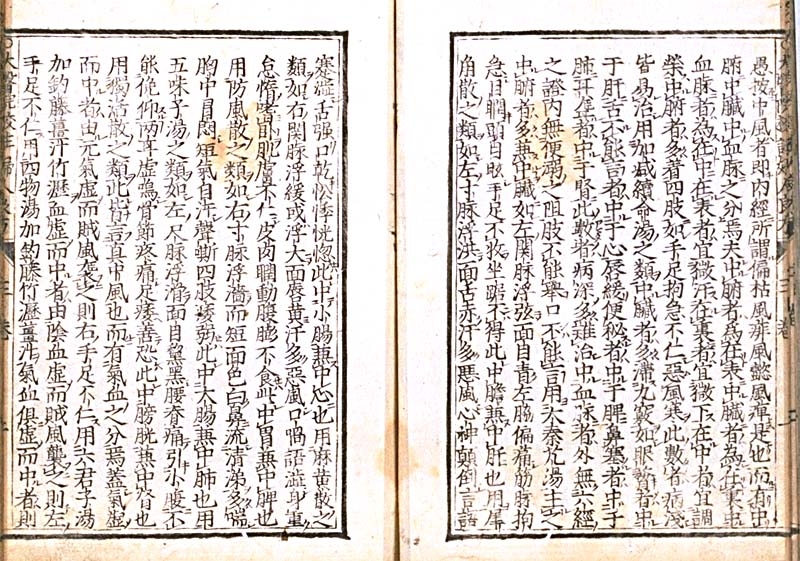 愚按中風者即内經所謂偏枯風痱風懿風痺是也而有中
腑中臟中血脉之分焉夫中腑者爲在表中臟者為在裏中
血脉者為在中在表者宜微汗在裏者宜微下在中者宜調
榮中腑者多着四肢如手足拘急不仁惡風寒此數者病淺
皆易治用加减續命湯之類中臟者多滯九竅如眼瞀者中
于肝舌不能言者中于心唇緩便秘者中于脾鼻塞者中于
肺耳聾者中于腎此數者病深多難治中血脉者外無六經
之證内無便溺之阻肢不能舉口不能言用大秦艽湯主之
中腑者多兼中臟如左關脉浮弦面目青左脇偏痛筋脉拘
急目瞤頭目眩手足不收坐踞不得此中膽兼中肝也用犀
角散之類如左寸脉浮洪面舌赤汗多惡風心神顛倒言語
蹇澁舌强口乾忪悸恍惚此中小腸兼中心也用麻黄散之
類如右關脉浮緩或浮大面唇黄汗多惡風口喎語澁身重
怠惰嗜卧肌膚不仁皮肉瞤動腹膨不食此中胃兼中脾也
用防風散之類如右寸脉浮濇而短面色白鼻流清涕多喘
胸中冒悶短氣自汗聲嘶四肢痿弱此中大腸兼中肺也用
五味子湯之類如左尺脉浮滑面目黧黑腰脊痛引小腹不
能俛仰兩耳虚鳴骨節疼痛足痿善恐此中膀胱兼中腎也
用獨活散之類此皆言真中風也而有氣血之分焉蓋氣虚
而中者由元氣虚而賊風襲之則右手足不仁用六君子湯
加鈎藤薑汁竹瀝血虚而中者由陰血虚而賊風襲之則左
手足不仁用四物湯加鈎藤竹瀝薑汁氣血俱虚而中者則